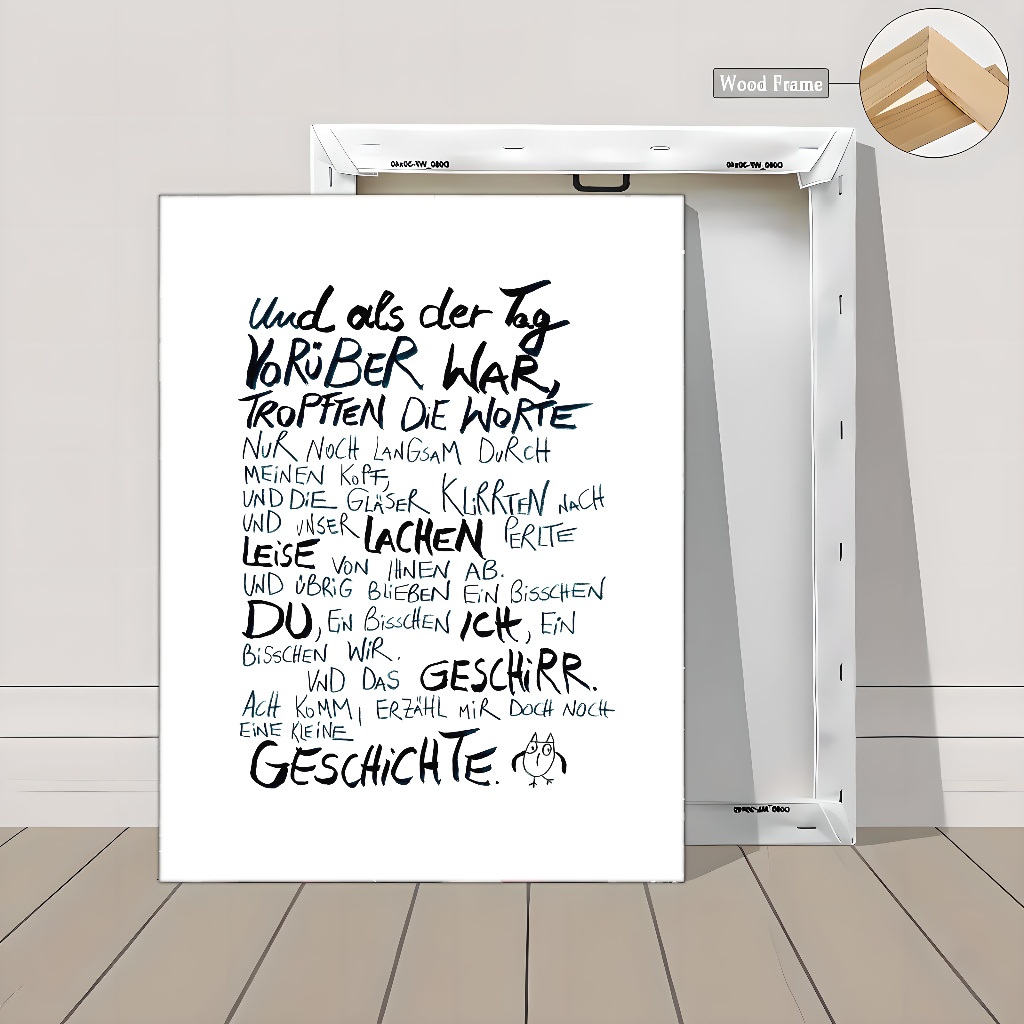 Wood Frame
Und als der Tag
VORÜBER WAR,
TROPFTEN DIE WORTE
NUR NOCH LANGSAM DURCH
MEINEN KOPF,
UND DIE GLÄSER KLIRRTEN NACH
UND UNSER LACHEN PERLTE
LEISE VON IHNEN AB.
UND ÜBRIG BLIEBEN EIN BISSCHEN
DU, EIN BISSCHEN ICH, EIN
BISSCHEN WIR.
UND DAS GESCHIRR.
ACH KOMM, ERZÄHL MIR DOCH NOCH
EINE KLEINE
GESCHICHTE.